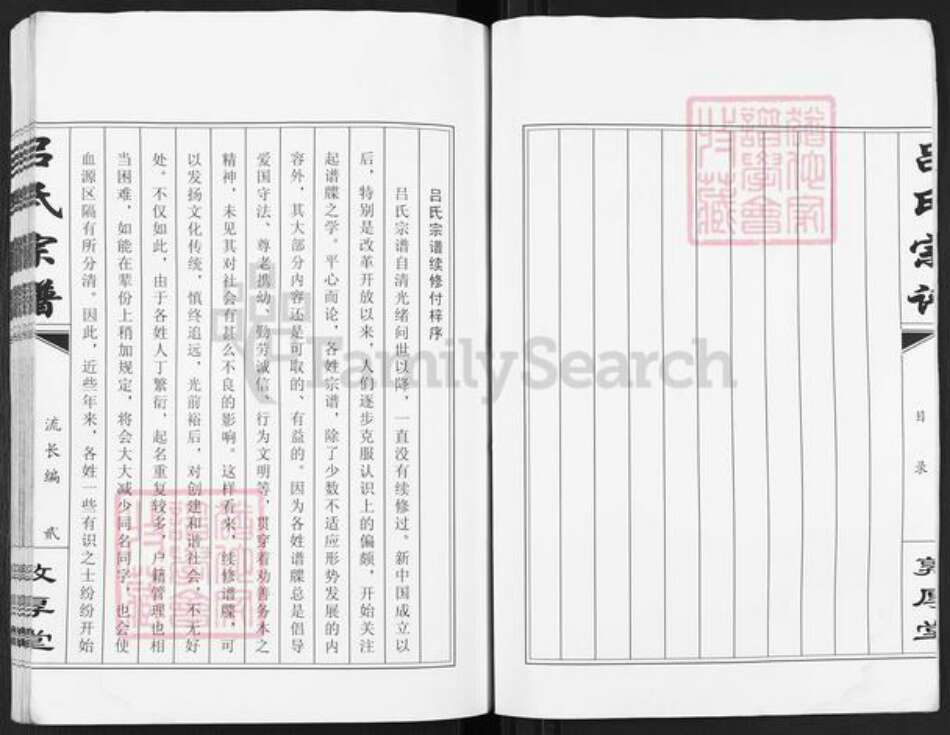 吕氏宗谱
目录
敦厚堂
吕氏宗谱续修付梓序
吕氏宗谱自清光绪问世以降，一直没有续修过。新中国成立以
后，特别是改革开放以来，人们逐步克服认识上的偏颇，开始关注
起谱牒之学。平心而论，各姓宗谱，除了少数不适应形势发展的内
容外，其大部分内容还是可取的、有益的。因为各姓谱牒总是倡导
爱国守法、尊老携幼、勤劳诚信、行为文明等，贯穿着劝善务本之
精神，未见其对社会有甚么不良的影响。这样看来，续修谱牒，可
以发扬文化传统，慎终追远，光前裕后，对创建和谐社会，不无好
处。不仅如此，由于各姓人丁繁衍，起名重复较多，户籍管理也相
当困难，如能在辈份上稍加规定，将会大大减少同名同字，也会使
血源区隔有所分清。因此，近些年来，各姓一些有识之士纷纷开始
吕氏宗谱
流长编
贰
敦厚堂
FamilySearch